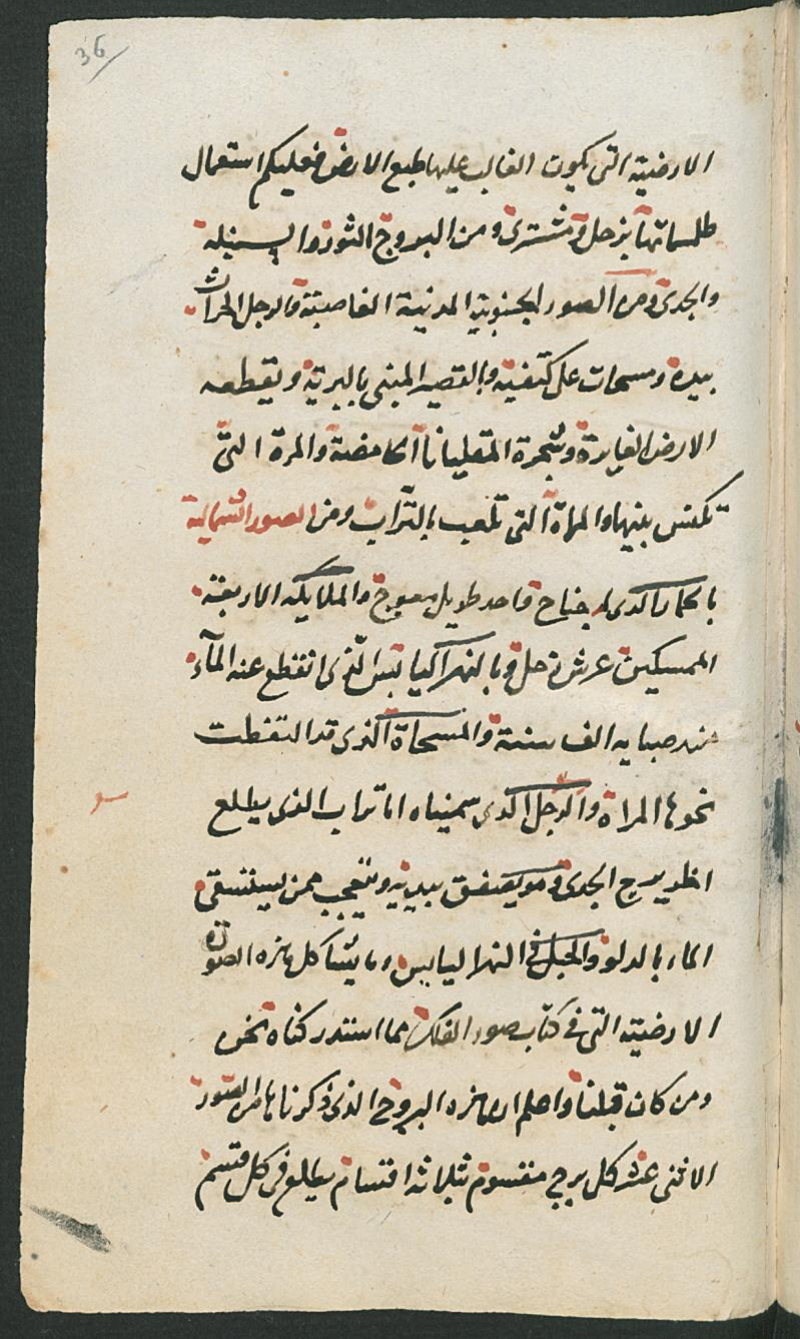 36
الارضية التى يكون الغالب عليها طبع الارض فعليكم استعمال
طلسماتها بزحل ومشترى ومن البروج الثور والسنبله
والجدى ومن الصور الجنوبية المدنية الغاصبة والرجل الحراث
بيده ومسحات على كتفيه وبالقصر المبنى بالبرية ويقطعه
الارض الغايرة وشجرة الحامضة والمرة التى
تكنس بيتها والمراة التى تلعب بالتراب ومن الصور الشمالية
الذى له جناح واحد طويل معوج والملايكه الاربعة
الممسكين عرش زحل وبالنهر اليابس الذى انقطع عنه المآء
الف سنة والمسحاة الذى قد التقطت
نحوها المراة والرجل الذى سميناه ابا تراب الذى يطلع
الجدى وهو يصفق بيديه ويتعجب ممن يستسقى
الماء بالدلو والحبل فى النهر اليابس وما يشاكل هزه الصورة
الارضية التى فى كتاب صور الفلك مما استدركناه نحن
ومن كان قبلنا واعلم ان هزه البروج الذى ذكرناها من الصور
الاثنى عشر كل برج مقسوم ثلاثة اقسام يطلع فى كل قسم